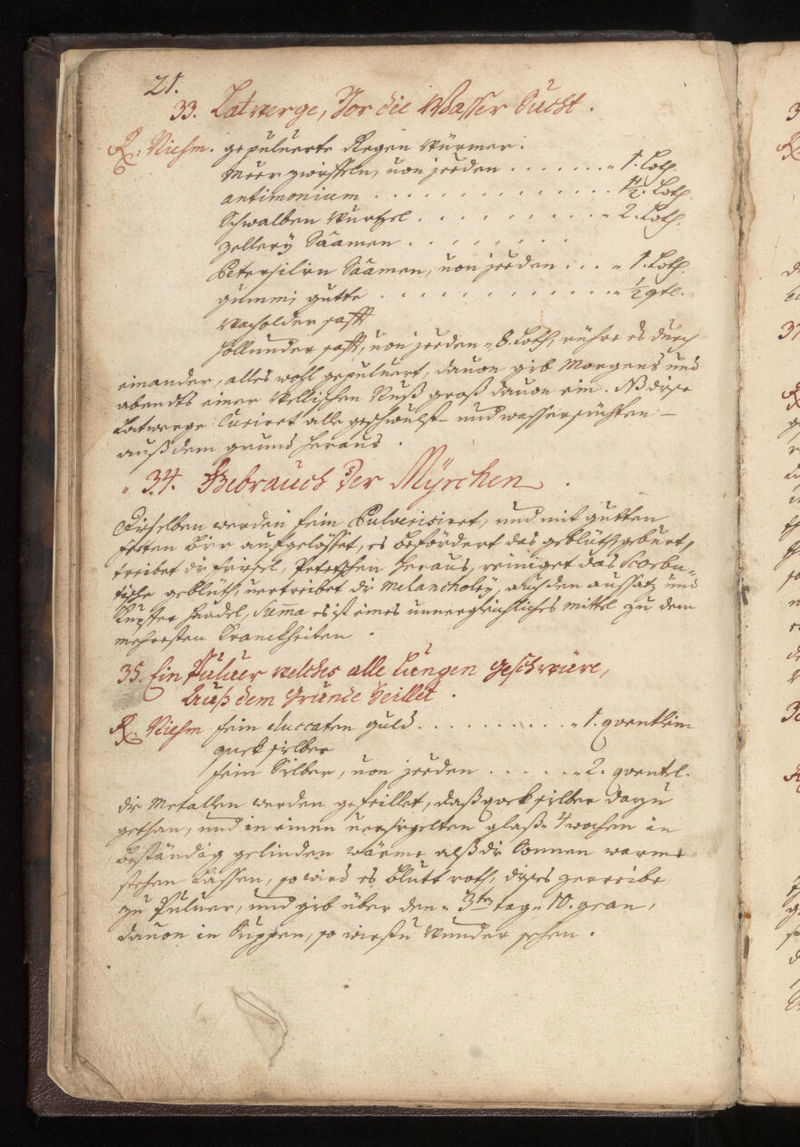 21.
33. Latwerge, Vor die Wasser Sucht.
Rx: Niehm. gepuluerte Regen Würmer.
Meer zwiffeln, uon jeeden . . . . . . . „ 1. Loth.
antimonium . . . . . . . . . . . . . . 1½. Loth.
Schwalben Wurzel . . . . . . . . . . „ 2. Loth.
Zellery Säamen . . . . . . . .
Petersilien Säamen, uon jeeden . . . „ 1. Loth
gummi gutte . . . . . . . . . . . . . „ ½ qtl.
Wacholder safft
Hollunder safft, uon jeeden „ 8. Loth, rühre es durch
einander, alles wohl gepuluert, dauon gib Morgens und
abendts einer Welschen Nuß groß dauon ein. NB diese
Latwerge Curiret alle geschwulst und wassersüchten
auß dem grund heraus.
„ 34. Gebrauch der Myrrhen.
Dieselben werden fein Puluerisiret, und mit gutten
Bier aufgelösset, es befördert das geblüth, geburt,
treibet die frießel, Petetschen heraus, reiniget das Scorbu-
tische geblüth, uertreibet die Melancholey, auch den aussatz und
Kupffer handel, Summa es ist eines unuergleichliches mittel zu dem
mehresten Kranckheiten.
35. Ein Puluer welches alle Lungen Geschwüre,
Auß dem Grunde Heillet.
Rx. Niehm fein duccaten guld . . . . . . . . . . . „ 1. quentlein
queck silber
fein Silber, uon jeeden . . . . . . „ 2. quentl.
die Metallen werden gefeillet, daß queck silber dazu
gethan, und in einen uersigelten glaße 4 wochen in
beständig gelinden wärme alß die Sonnen warme
stehen Lassen, so wird es blutt roth, dieses zerreibe
zu Puluer, und gib über den „ 3ten tag „ 10. gran,
dauon in Suppen, so wirstu Wunder sehen.